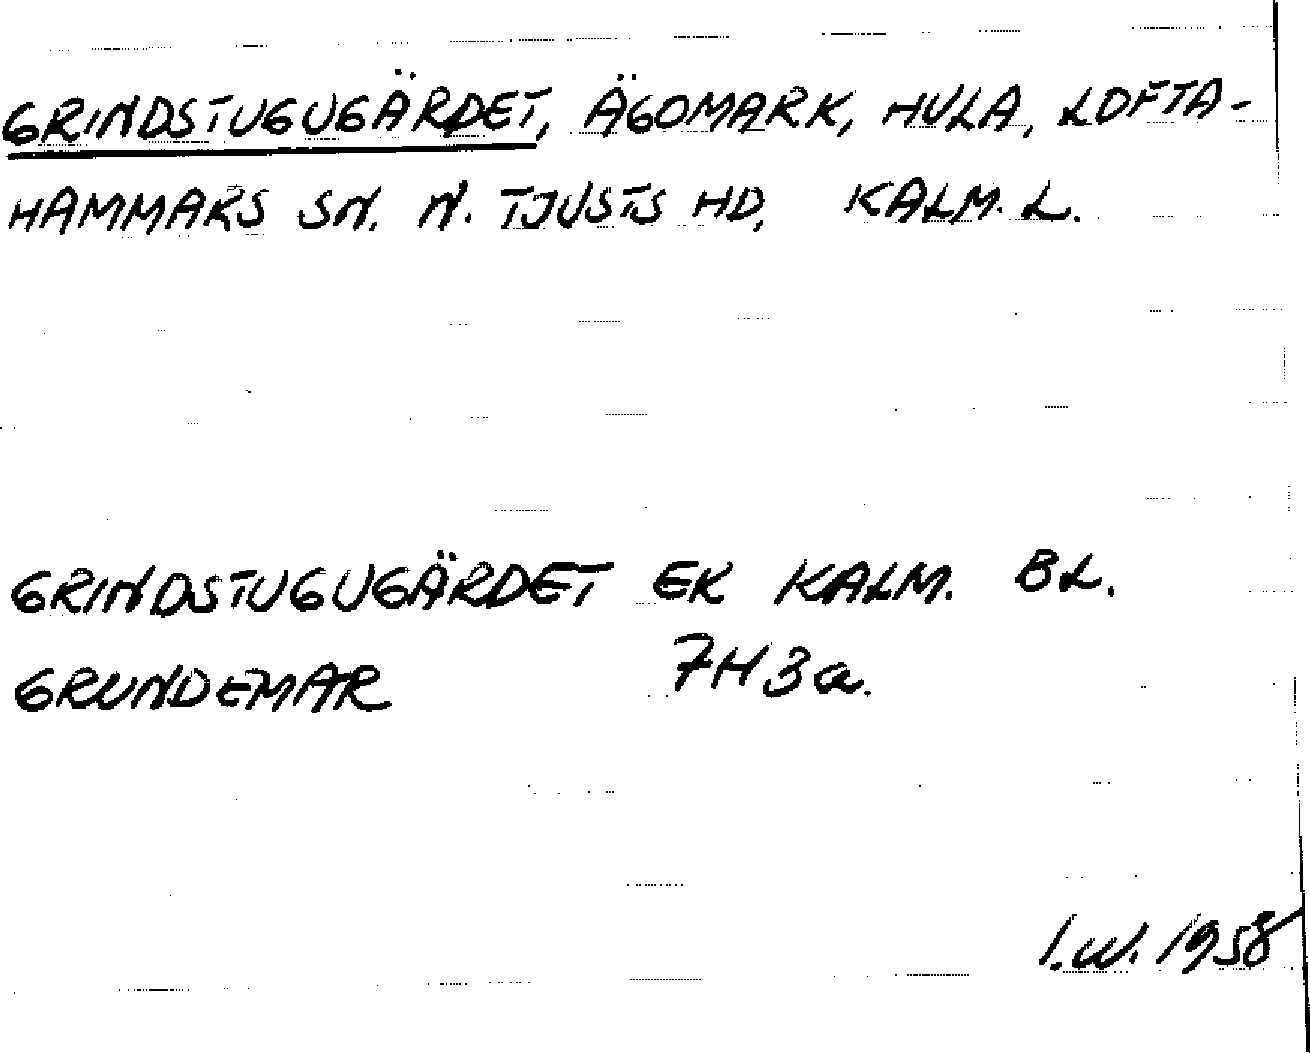 GRINDSTUGUGÄRDET, ÄGOMARK, HULA, LOFTA-
HAMMARS SN. N. TJUSTS HD, KALM. L.
GRINDSTUGUGÄRDET EK KALM. BL.
GRUNDEMAR 7H3a.
I.W. 1958